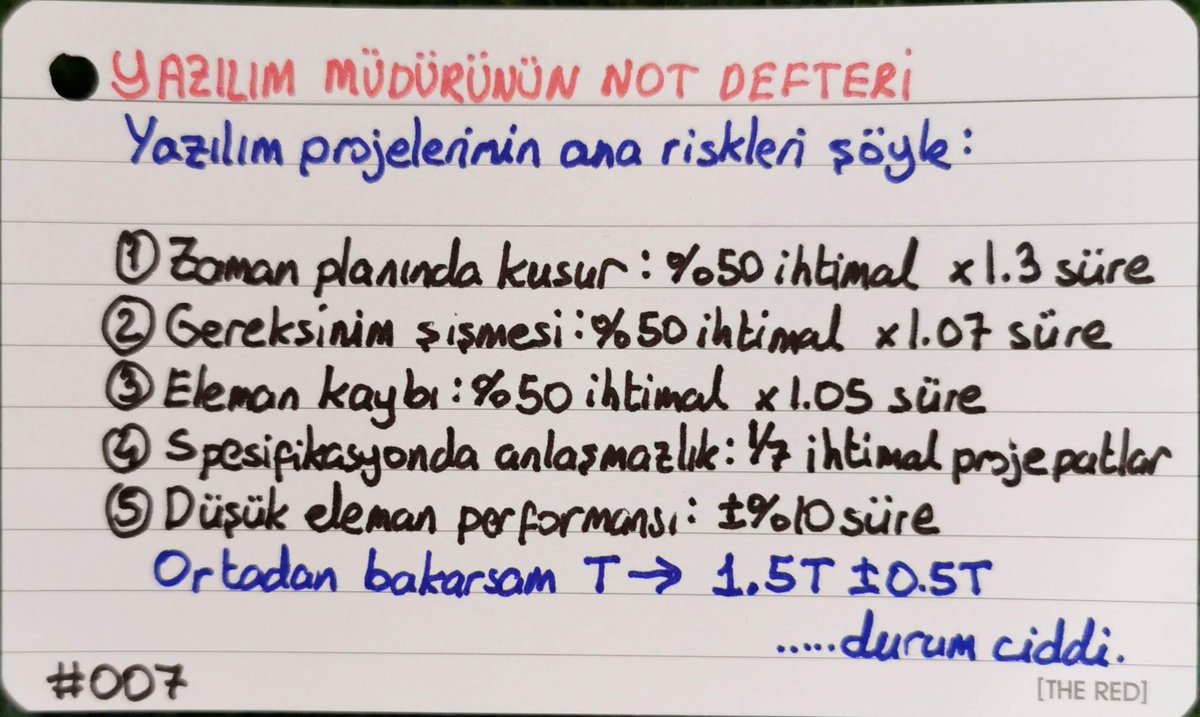 YAZILIM MÜDÜRÜNÜN NOT DEFTERİ
Yazılım projelerinin ana riskleri şöyle:
① Zaman planında kusur: %50 ihtimal x1.3 süre
② Gereksinim şişmesi: %50 ihtimal x1.07 süre
③ Eleman kaybı: %50 ihtimal x1.05 süre
④ Spesifikasyonda anlaşmazlık: 1/7 ihtimal proje patlar
⑤ Düşük eleman performansı: ±%10 süre
Ortadan bakarsam T → 1.5T ±0.5T
.....durum ciddi.
#007
[THE RED]